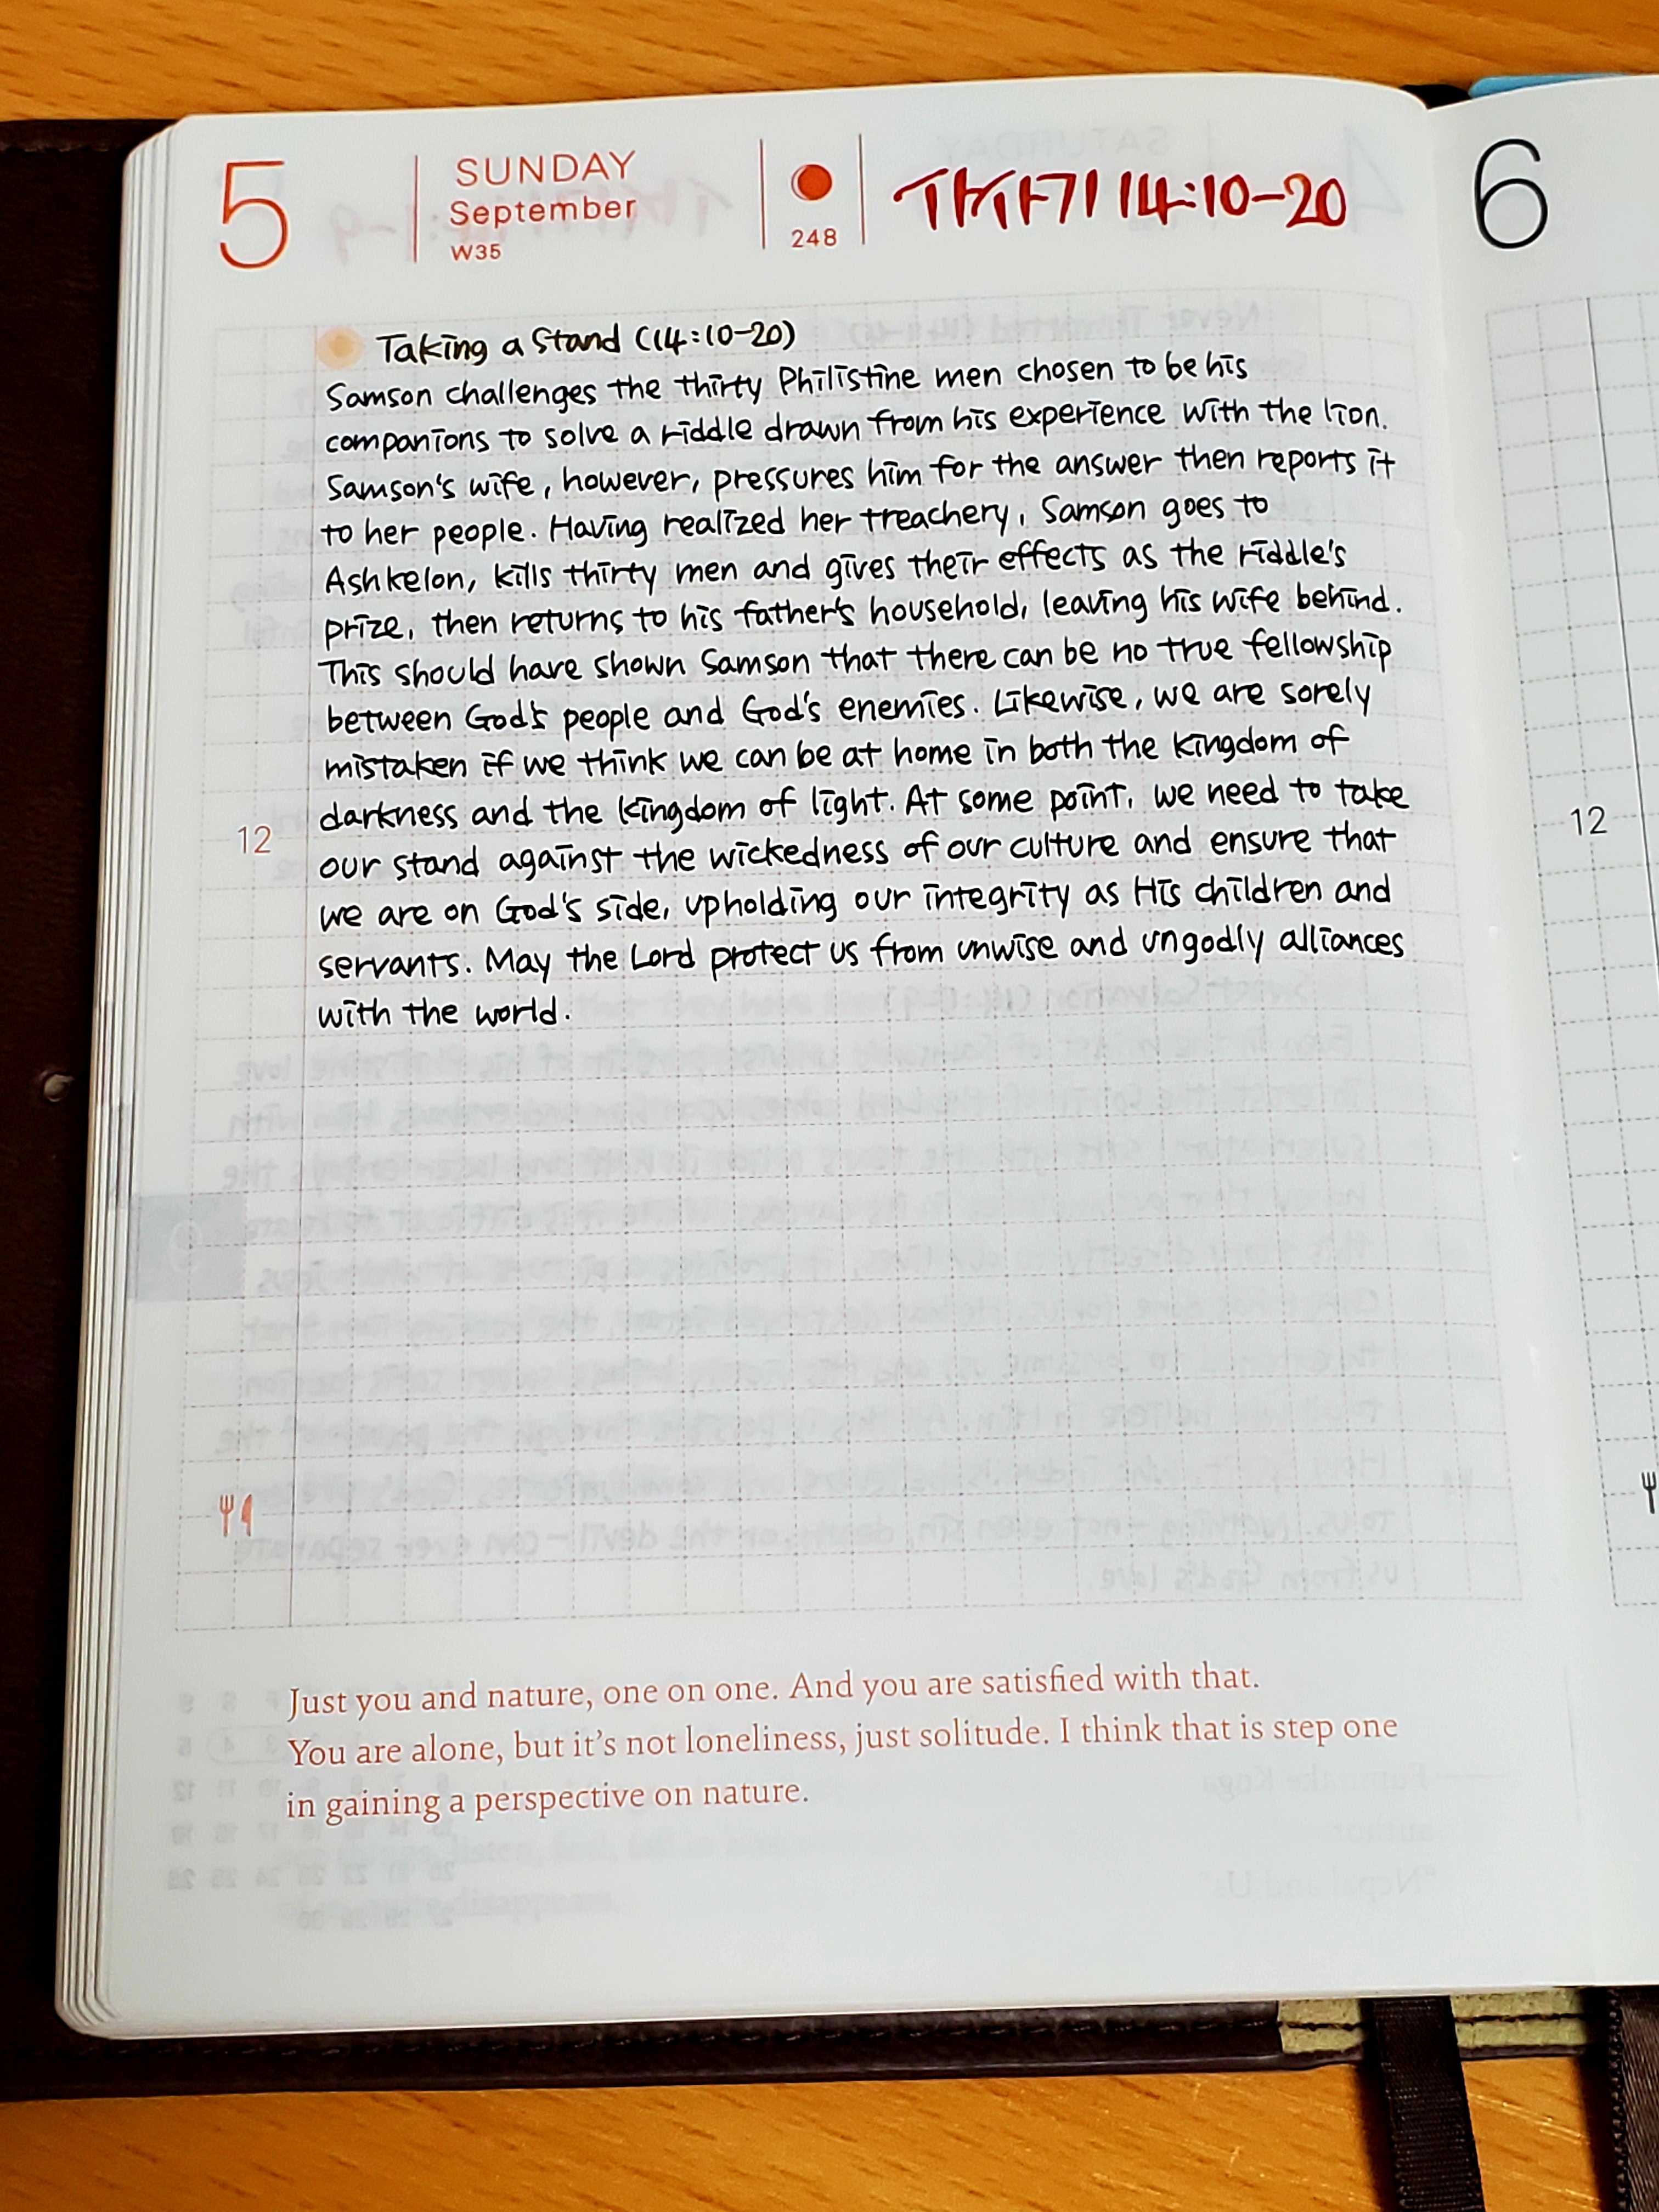 5
SUNDAY
September
W35
248
사사기 14:10-20
6
Taking a Stand (14:10-20)
Samson challenges the thirty Philistine men chosen to be his
companions to solve a riddle drawn from his experience with the lion.
Samson's wife, however, pressures him for the answer then reports it
to her people. Having realized her treachery, Samson goes to
Ashkelon, kills thirty men and gives their effects as the riddle's
prize, then returns to his father's household, leaving his wife behind.
This should have shown Samson that there can be no true fellowship
between God's people and God's enemies. Likewise, we are sorely
mistaken if we think we can be at home in both the kingdom of
darkness and the kingdom of light. At some point, we need to take
our stand against the wickedness of our culture and ensure that
we are on God's side, upholding our integrity as His children and
servants. May the Lord protect us from unwise and ungodly alliances
with the world.
12
12
Just you and nature, one on one. And you are satisfied with that.
You are alone, but it's not loneliness, just solitude. I think that is step one
in gaining a perspective on nature.